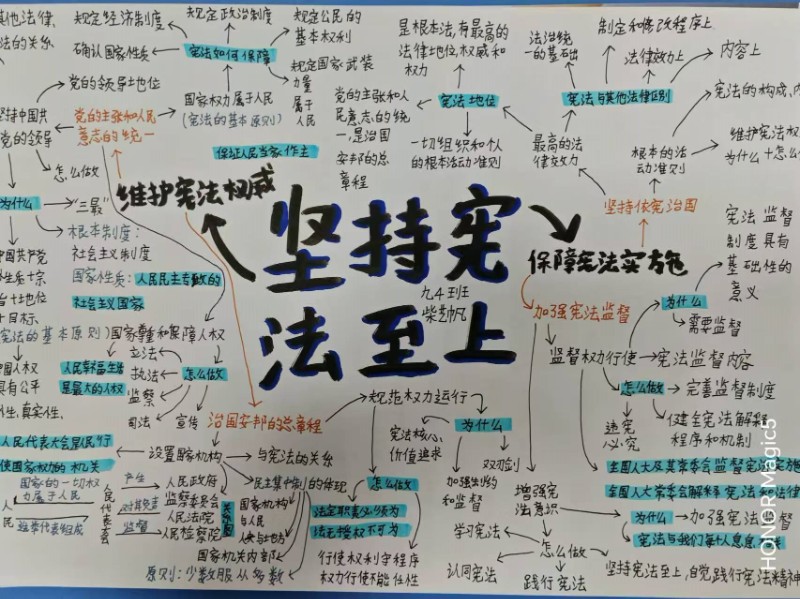 其他法律
规定经济制度
规定政治制度
规定公民的
基本权利
是根本法,有最高的
法律地位,权威和
权力
宪法统
一的基础
制定和修改程序上
法的关系
确认国家性质
宪法如何保障
规定国家武装
力量
属于
人民
法律效力上
内容上
党的领导地位
国家权力属于人民
(宪法的基本原则)
党的主张和人
民意志的统
一,是治国
安邦的总
章程
宪法地位
宪法与其他法律区别
宪法的构成
坚持中国共
党的领导
党的主张和人民
意志的统一
保证人民当家作主
一切组织和个人
的根本活动准则
最高的法
律效力
根本的法
动准则
维护宪法权
为什么+怎么
怎么做
为什么
"三最"
维护宪法权威
坚持宪
法至上
九4班
坚持依宪治国
保障宪法实施
宪法监督
制度具有
基础性的
意义
根本制度:
社会主义制度
国家性质:人民民主专政的
社会主义国家
中国共产党
加强宪法监督
为什么
需要监督
宪法的基本原则)国家尊重和保障人权
立法
执法
监察
司法
怎么做
人民幸福生活
是最大的人权
监督权力行使
宪法监督内容
怎么做
完善监督制度
健全宪法解释
程序和机制
违宪
必究
宣传
治国安邦的总章程
规范权力运行
宪法核心,
价值追求
为什么
双刃剑
加强制约
和监督
人民代表大会是人民行
使国家权力的机关
设置国家机构
与宪法的关系
民主集中制的体现
怎么做
法定职责必须为
法无授权不可为
行使权利守程序
权力行使不能任性
国家的一切权
力属于人民
人民
选举代表组成
人民代表大会
产生
对其负责
监督
人民政府
监察委员会
人民法院
人民检察院
关系图
国家机构
与人民
人央与地方
国家机关内部
原则:少数服从多数
增强宪
法意识
全国人大及其常委会监督宪法实施
全国人大常委会解释宪法和法律
为什么
加强宪法监督
宪法与我们每个人息息相关
学习宪法
认同宪法
怎么做
践行宪法
坚持宪法至上,自觉践行宪法精神
HONOR Magic5